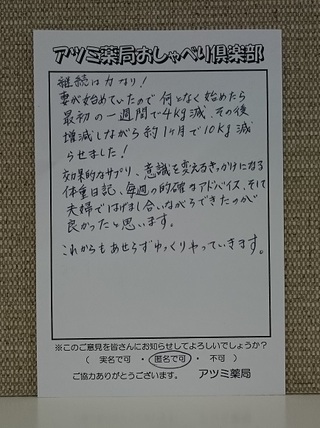 アツミ薬局おしゃべり倶楽部
継続は力なり!
妻が始めていたので何となく始めたら
最初の一週間で4kg減、その後
増減しながら約1ヶ月で10kg減
らせました!
効果的なサプリ、意識を変えるきっかけになる
体重日記、毎週の的確なアドバイス、そして
夫婦ではげまし合いながらできたのが
良かったと思います。
これからもあせらずゆっくりやっていきます。
※このご意見を皆さんにお知らせしてよろしいでしょうか?
( 実名で可 ・ 匿名で可 ・ 不可 )
ご協力ありがとうございます。 アツミ薬局